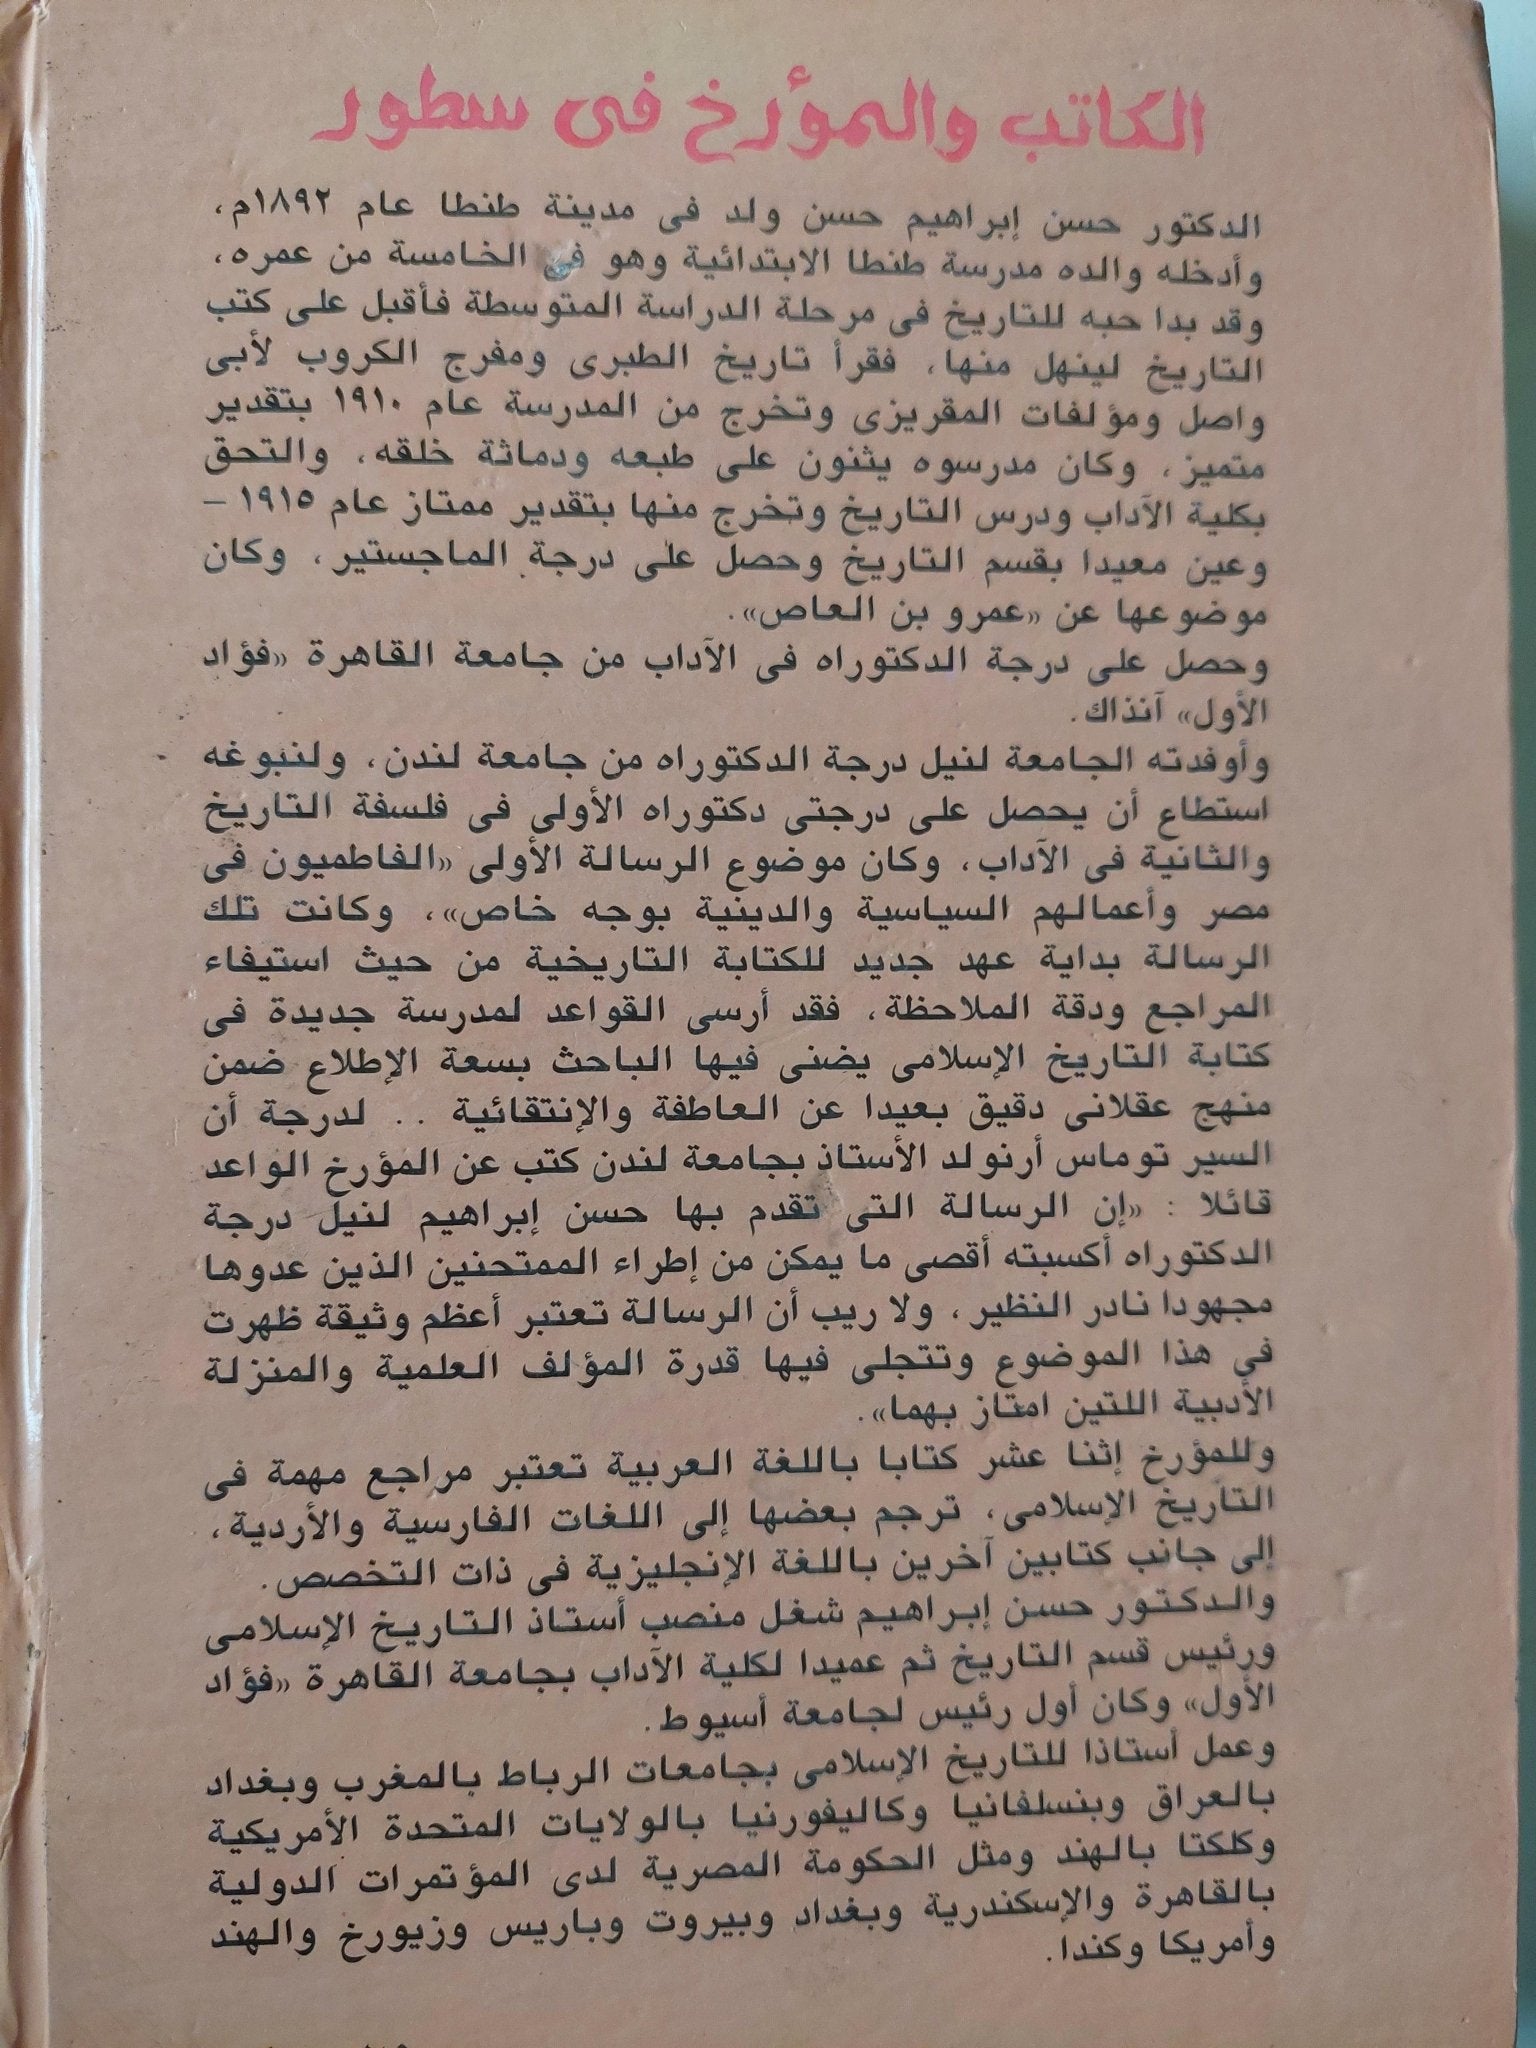 الكاتب والمؤرخ فى سطور
الدكتور حسن إبراهيم حسن ولد فى مدينة طنطا عام ١٨٩٢م،
وأدخله والده مدرسة طنطا الابتدائية وهو فى الخامسة من عمره،
وقد بدا حبه للتاريخ فى مرحلة الدراسة المتوسطة فأقبل على كتب
التاريخ لينهل منها، فقرأ تاريخ الطبرى ومفرج الكروب لأبى
واصل ومؤلفات المقريزى وتخرج من المدرسة عام ١٩١٠ بتقدير
متميز، وكان مدرسوه يثنون على طبعه ودماثة خلقه، والتحق
بكلية الآداب ودرس التاريخ وتخرج منها بتقدير ممتاز عام ١٩١٥ –
وعين معيدا بقسم التاريخ وحصل على درجة الماجستير، وكان
موضوعها عن «عمرو بن العاص».
وحصل على درجة الدكتوراه فى الآداب من جامعة القاهرة «فؤاد
الأول» آنذاك.
وأوفدته الجامعة لنيل درجة الدكتوراه من جامعة لندن، ولنبوغه
استطاع أن يحصل على درجتى دكتوراه الأولى فى فلسفة التاريخ
والثانية فى الآداب، وكان موضوع الرسالة الأولى «الفاطميون فى
مصر وأعمالهم السياسية والدينية بوجه خاص»، وكانت تلك
الرسالة بداية عهد جديد للكتابة التاريخية من حيث استيفاء
المراجع ودقة الملاحظة، فقد أرسى القواعد لمدرسة جديدة فى
كتابة التاريخ الإسلامى يضنى فيها الباحث بسعة الإطلاع ضمن
منهج عقلانى دقيق بعيدا عن العاطفة والإنتقائية .. لدرجة أن
السير توماس أرنولد الأستاذ بجامعة لندن كتب عن المؤرخ الواعد
قائلا : «إن الرسالة التى تقدم بها حسن إبراهيم لنيل درجة
الدكتوراه أكسبته أقصى ما يمكن من إطراء الممتحنين الذين عدوها
مجهودا نادر النظير، ولا ريب أن الرسالة تعتبر أعظم وثيقة ظهرت
فى هذا الموضوع وتتجلى فيها قدرة المؤلف العلمية والمنزلة
الأدبية اللتين امتاز بهما».
وللمؤرخ إثنا عشر كتابا باللغة العربية تعتبر مراجع مهمة فى
التاريخ الإسلامى، ترجم بعضها إلى اللغات الفارسية والأردية،
إلى جانب كتابين آخرين باللغة الإنجليزية فى ذات التخصص.
والدكتور حسن إبراهيم شغل منصب أستاذ التاريخ الإسلامى
ورئيس قسم التاريخ ثم عميدا لكلية الآداب بجامعة القاهرة «فؤاد
الأول» وكان أول رئيس لجامعة أسيوط.
وعمل أستاذا للتاريخ الإسلامى بجامعات الرباط بالمغرب وبغداد
بالعراق وبنسلفانيا وكاليفورنيا بالولايات المتحدة الأمريكية
وكلكتا بالهند ومثل الحكومة المصرية لدى المؤتمرات الدولية
بالقاهرة والإسكندرية وبغداد وبيروت وباريس وزيورخ والهند
وأمريكا وكندا.